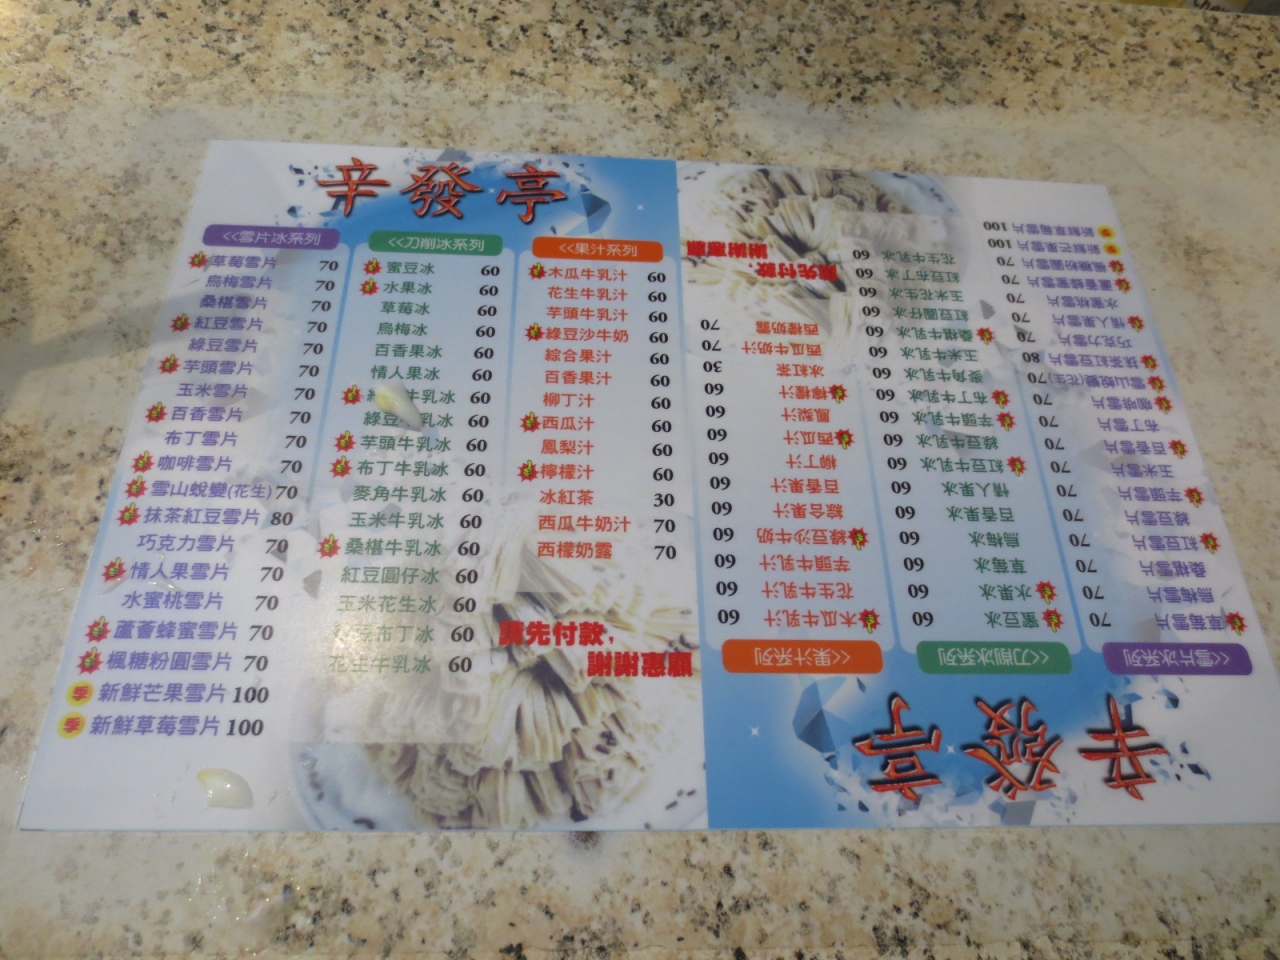 辛發亭
<<雪片冰系列
草莓雪片 70
烏梅雪片 70
桑椹雪片 70
紅豆雪片 70
綠豆雪片 70
芋頭雪片 70
玉米雪片 70
百香雪片 70
布丁雪片 70
咖啡雪片 70
雪山蛻變(花生) 70
抹茶紅豆雪片 80
巧克力雪片 70
情人果雪片 70
水蜜桃雪片 70
蘆薈蜂蜜雪片 70
楓糖粉圓雪片 70
季 新鮮芒果雪片 100
季 新鮮草莓雪片 100
<<刀削冰系列
蜜豆冰 60
水果冰 60
草莓冰 60
烏梅冰 60
百香果冰 60
情人果冰 60
牛乳冰 60
綠豆牛乳冰 60
芋頭牛乳冰 60
布丁牛乳冰 60
麥角牛乳冰 60
玉米牛乳冰 60
桑椹牛乳冰 60
紅豆圓仔冰 60
玉米花生冰 60
紅豆布丁冰 60
花生牛乳冰 60
<<果汁系列
木瓜牛乳汁 60
花生牛乳汁 60
芋頭牛乳汁 60
綠豆沙牛奶 60
綜合果汁 60
百香果汁 60
柳丁汁 60
西瓜汁 60
鳳梨汁 60
檸檬汁 60
冰紅茶 30
西瓜牛奶汁 70
西檬奶露 70
請先付款，
謝謝惠顧
辛發亭
<<雪片冰系列
草莓雪片 70
烏梅雪片
桑椹雪片 70
紅豆雪片 70
綠豆雪片 70
芋頭雪片 70
玉米雪片 70
百香雪片 70
布丁雪片 70
咖啡雪片 70
雪山蛻變(花生) 70
抹茶紅豆雪片 80
巧克力雪片 70
情人果雪片 70
水蜜桃雪片 70
蘆薈蜂蜜雪片 70
楓糖粉圓雪片 70
新鮮芒果雪片 100
新鮮草莓雪片 100
<<刀削冰系列
蜜豆冰 60
水果冰 60
草莓冰 60
烏梅冰 60
百香果冰 60
情人果冰 60
紅豆牛乳冰 60
綠豆牛乳冰 60
芋頭牛乳冰 60
布丁牛乳冰 60
麥角牛乳冰 60
玉米牛乳冰 60
桑椹牛乳冰 60
紅豆圓仔冰 60
玉米花生冰 60
紅豆布丁冰 60
花生牛乳冰 60
<<果汁系列
木瓜牛乳汁 60
花生牛乳汁 60
芋頭牛乳汁 60
綠豆沙牛奶 60
綜合果汁 60
百香果汁 60
柳丁汁 60
西瓜汁 60
鳳梨汁 60
檸檬汁 60
冰紅茶 30
西瓜牛奶汁 70
西檬奶露 70
請先付款，
謝謝惠顧